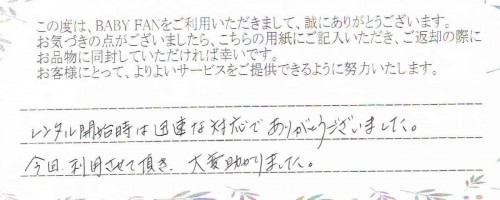 この度は、BABY FANをご利用いただきまして、誠にありがとうございます。
お気づきの点がございましたら、こちらの用紙にご記入いただき、ご返却の際に
お品物に同封していただければ幸いです。
お客様にとって、よりよいサービスをご提供できるように努力いたします。
レンタル開始時は迅速な対応でありがとうございました。
今回、利用させて頂き、大変助かりました。